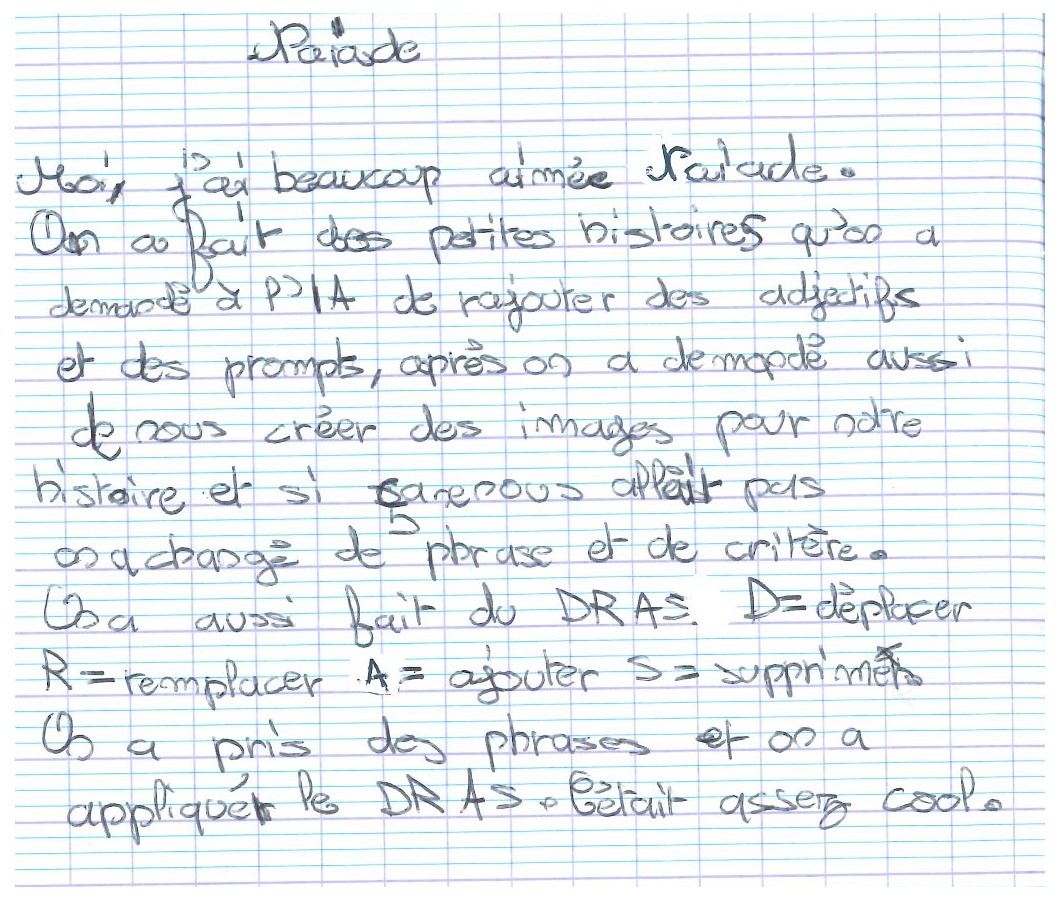 Naiade
Moi, j'ai beaucoup aimée Naiade.
On a fait des petites histoires qu'on a
demandé à l'IA de rajouter des adjectifs
et des prompts, après on a demandé aussi
de nous créer des images pour notre
histoire et si ça ne nous allait pas
on a changé de phrase et de critère.
On a aussi fait du DRAS. D=déplacer
R=remplacer A= ajouter S= supprimer
On a pris des phrases et on a
appliquér le DRAS. C'était assez cool.